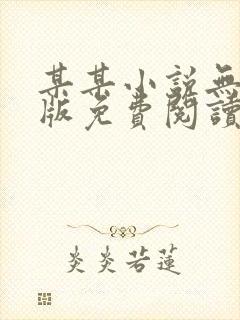 某某小説無
版免費閱讀
炎炎若蓮